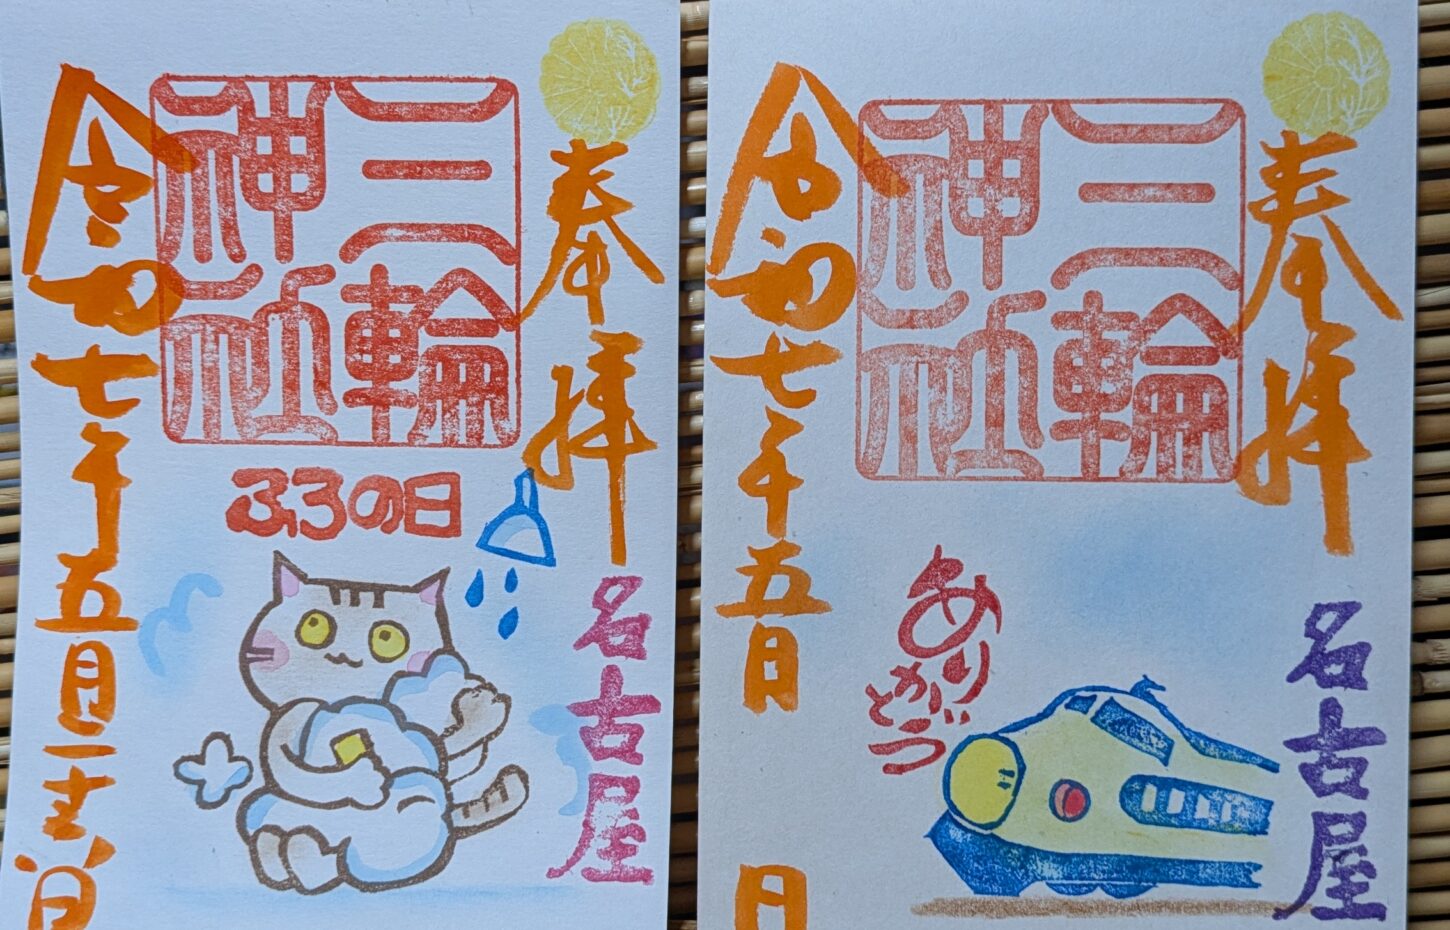 奉拝
三輪
神社
ふろの日
名古屋
令和七年五月二十六日
奉拝
三輪
神社
ありがとう
名古屋
令和七年五月 日